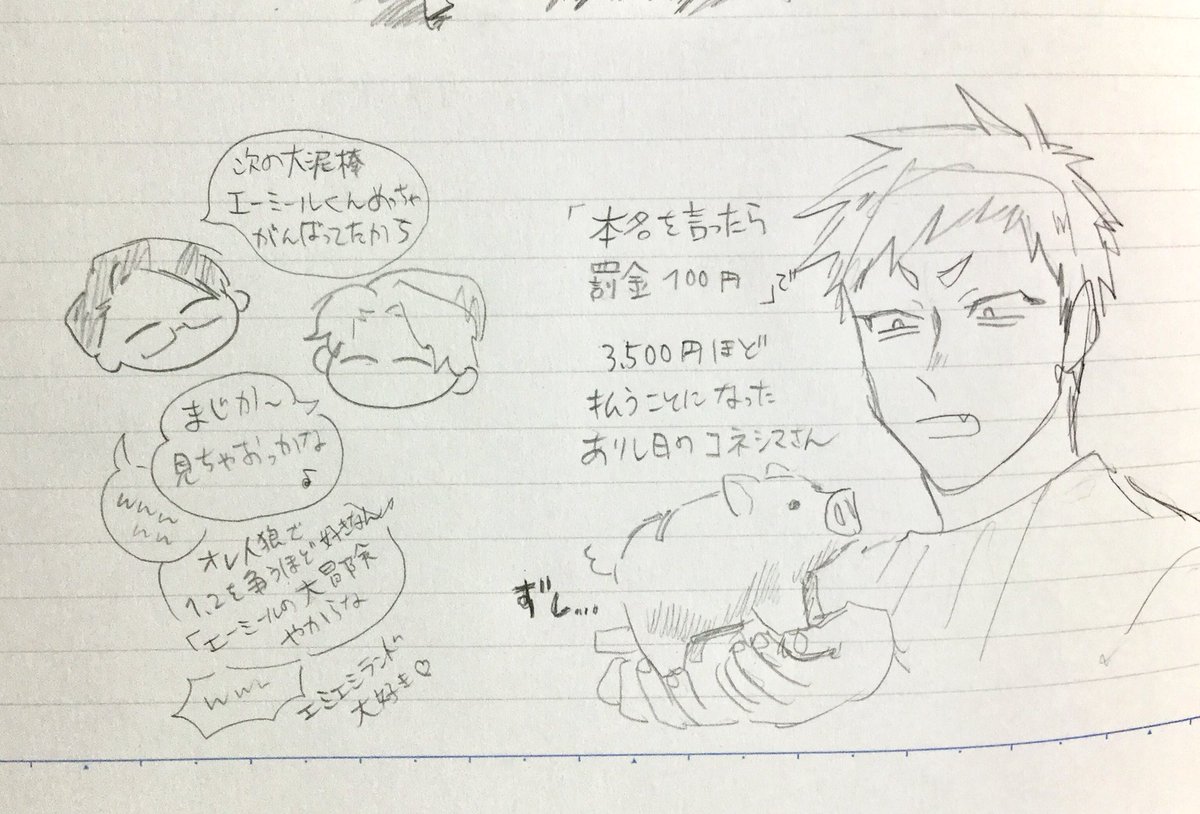 次の大泥棒
エーミールくんめっちゃ
がんばってたから
まじか〜
見ちゃおっかな
♪
www
ww
オレ人狼で
1、2を争うほど好きなん
「エーミールの大冒険
やからな
www
エミエミランド
大好き♡
「本名を言ったら
罰金100円」で
3,500円ほど
払うことになった
ありし日のコネシマさん
ずし…